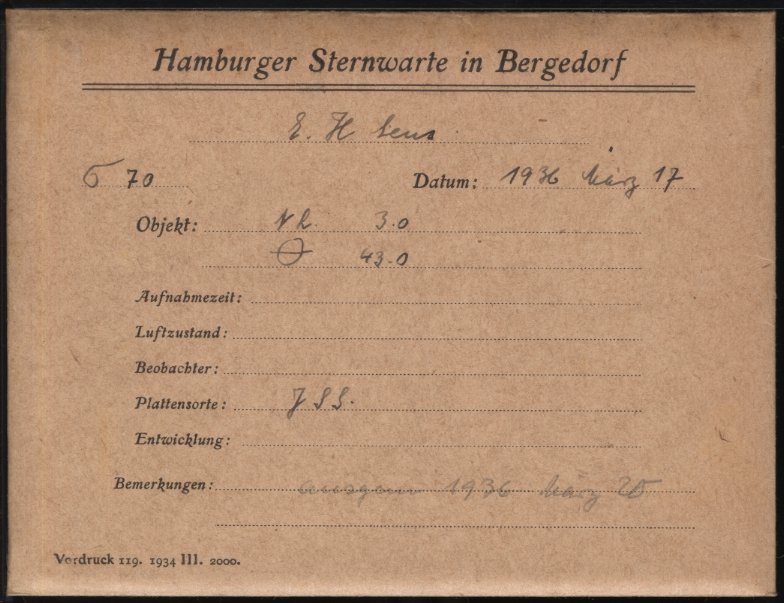 Hamburger Sternwarte in Bergedorf
E. H
70 Datum: 1936 März 17
Objekt: 3.0
43.0
Aufnahmezeit:
Luftzustand:
Beobachter:
Plattensorte:
Entwicklung:
Bemerkungen: 1936 März 20
Vordruck 119. 1934 III. 2000.